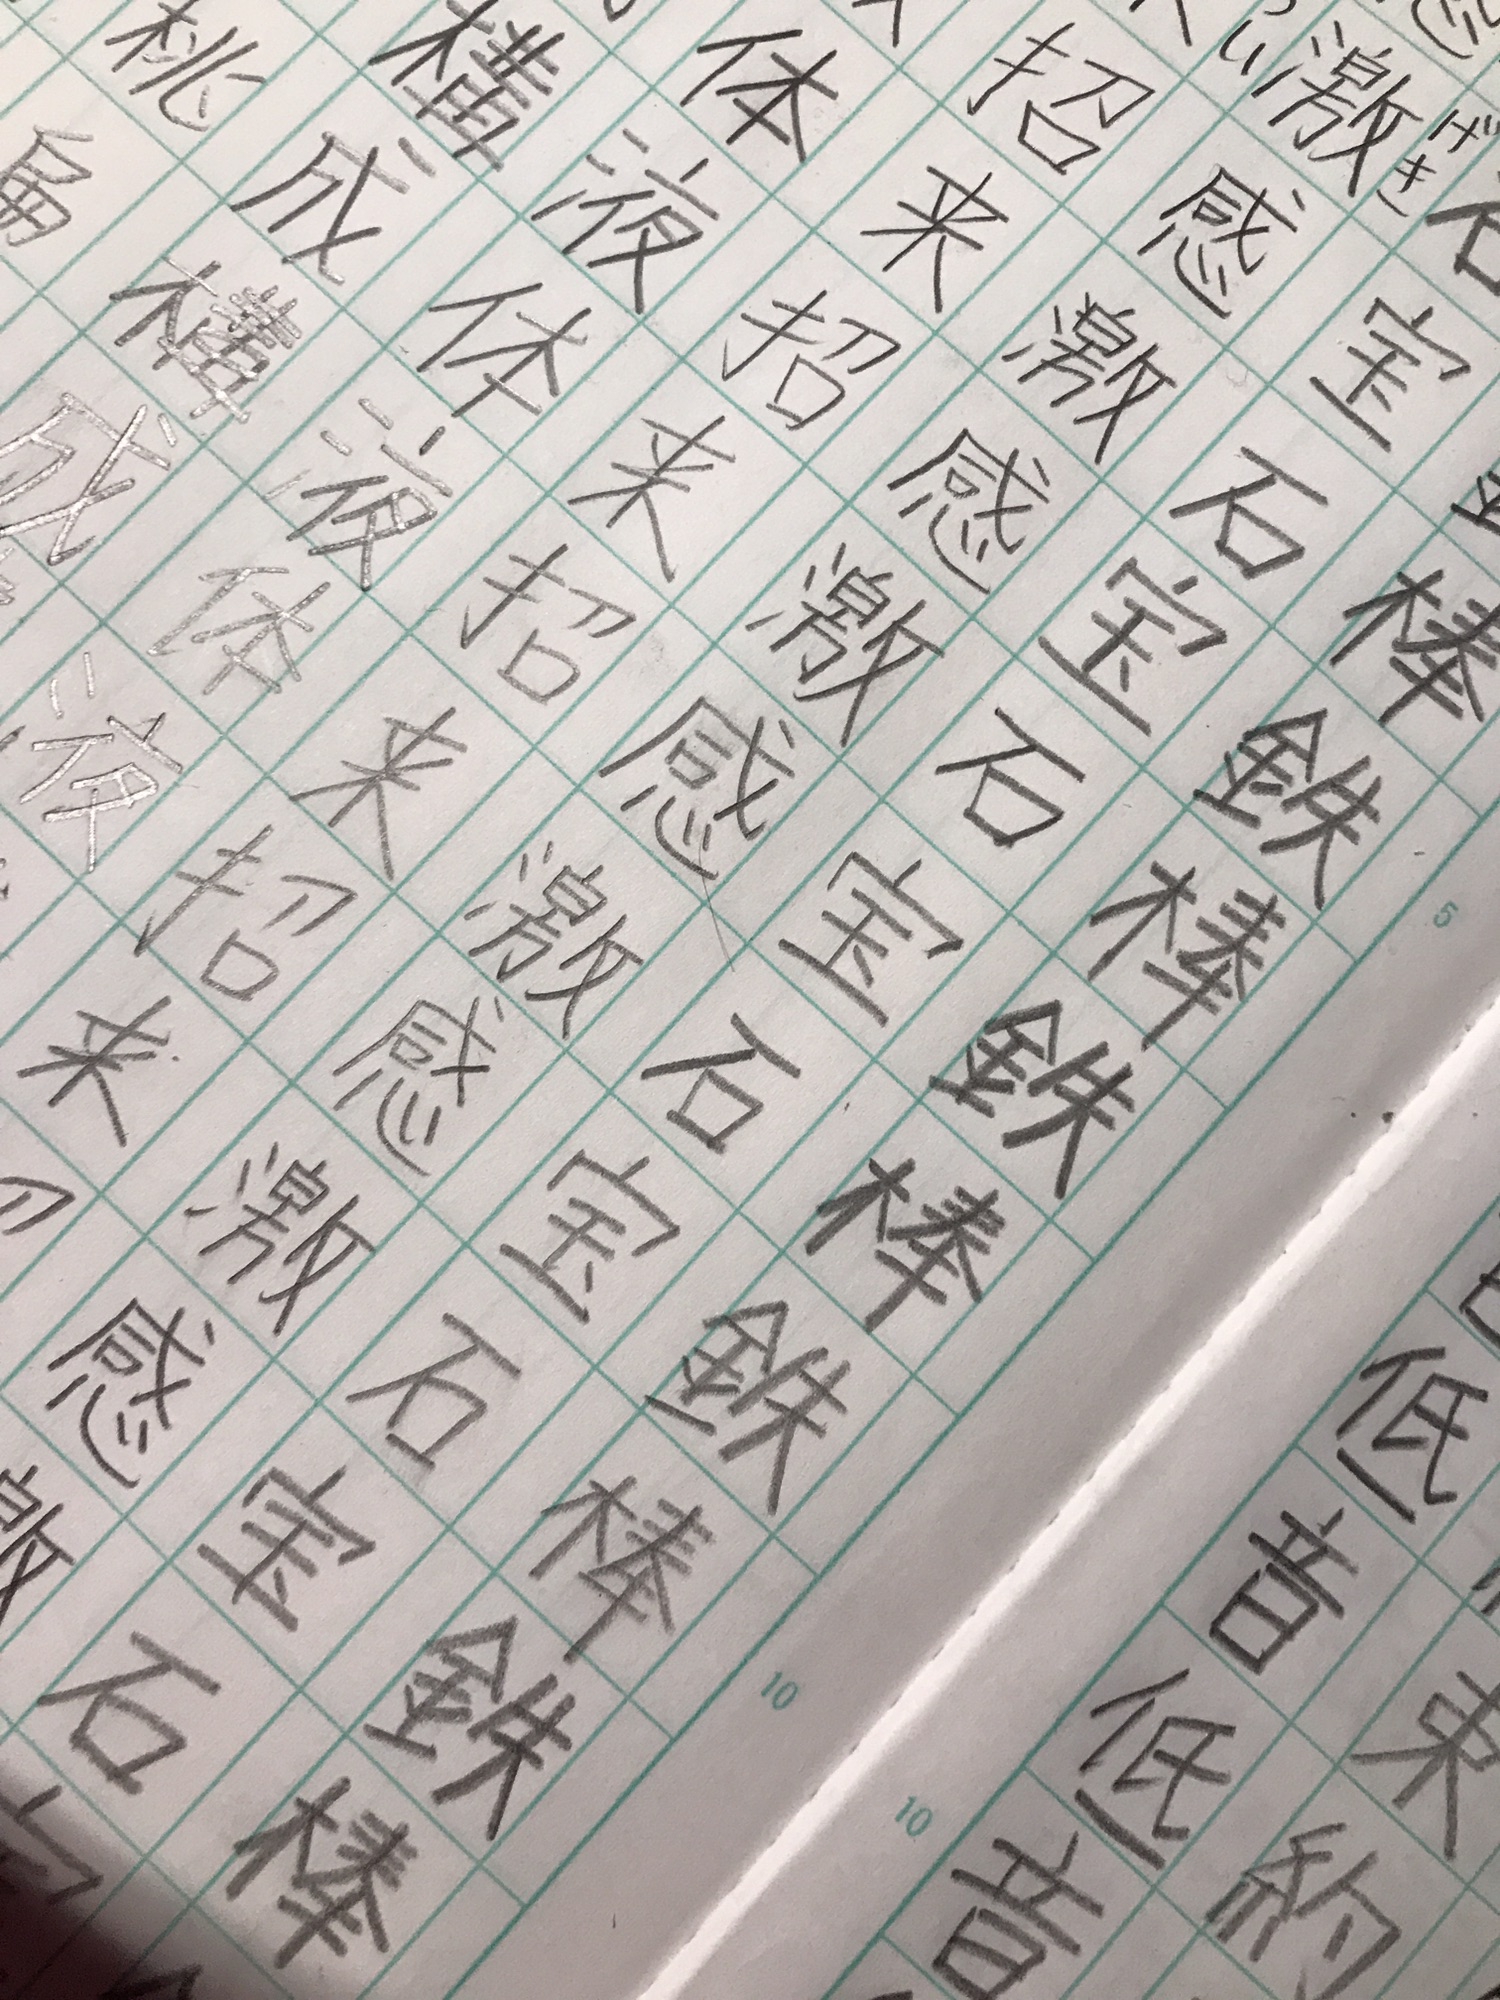 束約
低音低音
棒鉄棒鉄棒鉄棒鉄棒
石宝石宝石宝石宝石宝石
げき
激感激感激感激感激感激
招来招来招来招来
体液体液体液
構成構成